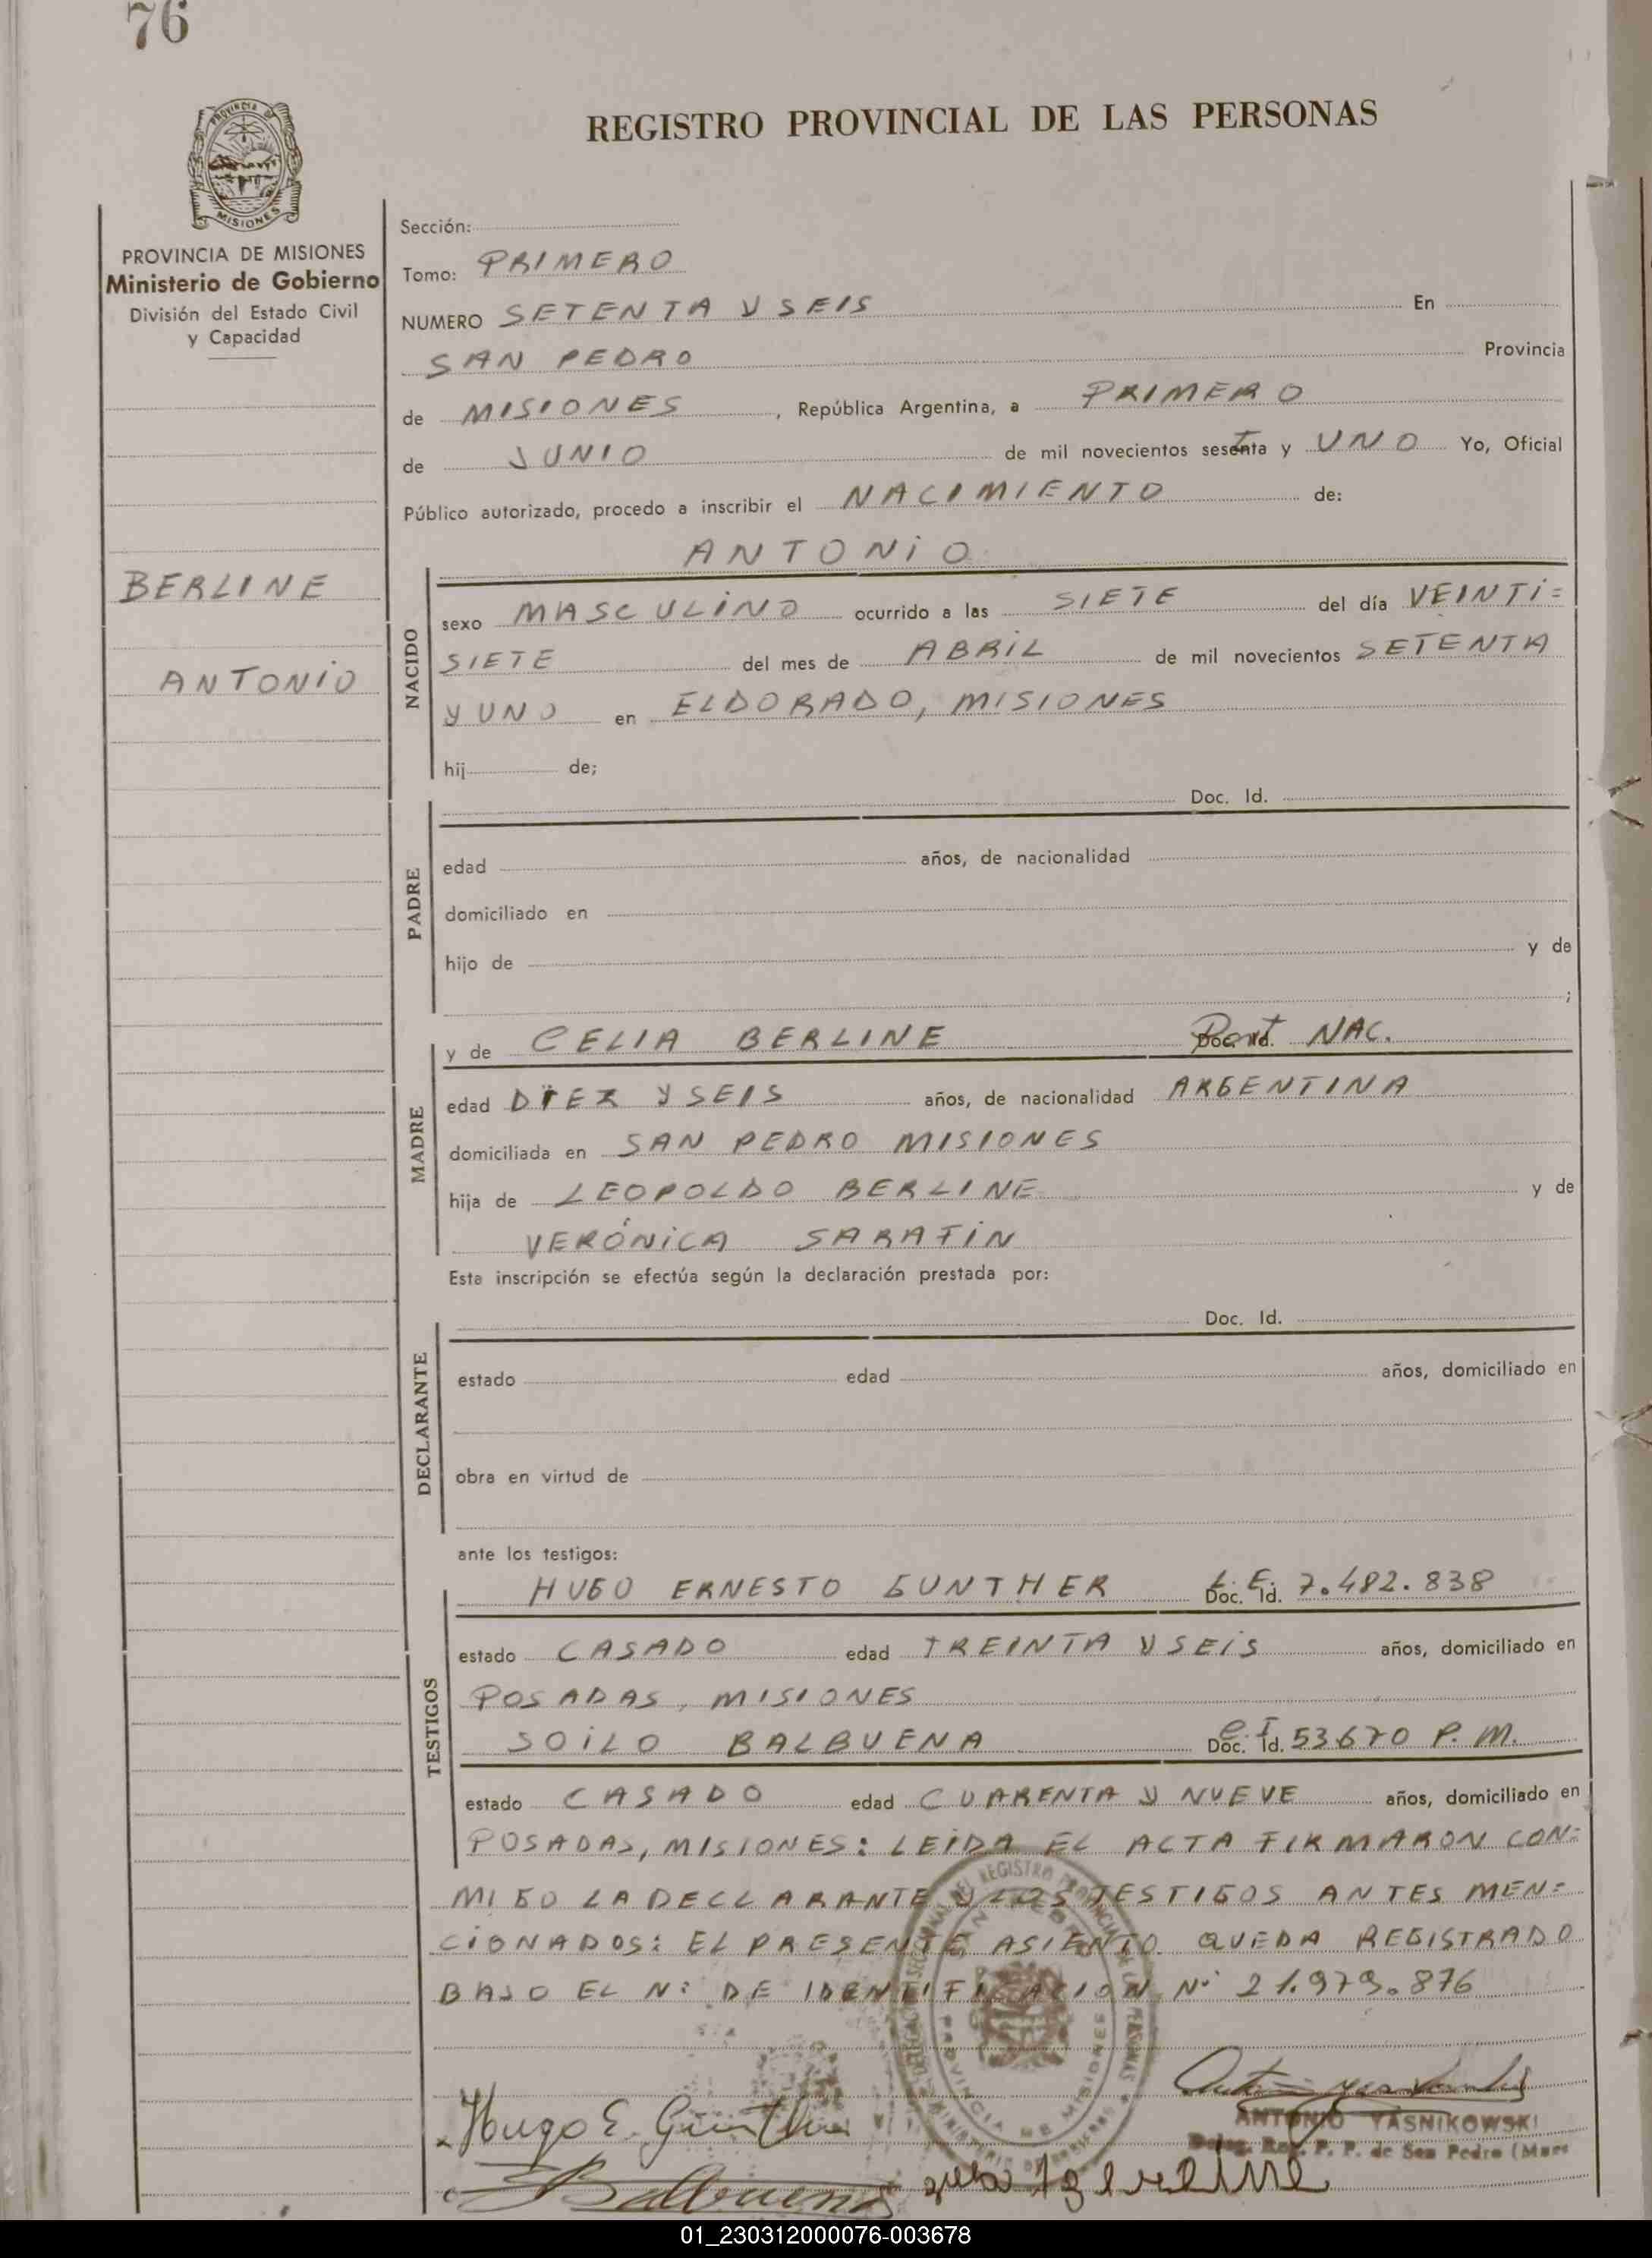 76
REGISTRO PROVINCIAL DE LAS PERSONAS
PROVINCIA DE MISIONES
Ministerio de Gobierno
División del Estado Civil
y Capacidad
BERLINE
ANTONIO
Sección:
Tomo: PRIMERO
NUMERO SETENTA Y SEIS En
SAN PEDRO Provincia
de MISIONES, República Argentina, a PRIMERO
de JUNIO de mil novecientos setenta y UNO Yo, Oficial
Público autorizado, procedo a inscribir el NACIMIENTO de:
ANTONIO
NACIDO
sexo MASCULINO ocurrido a las SIETE del día VEINTI=
SIETE del mes de ABRIL de mil novecientos SETENTA
Y UNO en ELDORADO, MISIONES
hij de;
Doc. Id.
PADRE
edad años, de nacionalidad
domiciliado en
hijo de y de
;
y de CELIA BERLINE NAC.
MADRE
edad DIEZ Y SEIS años, de nacionalidad ARGENTINA
domiciliada en SAN PEDRO MISIONES
hija de LEOPOLDO BERLINE y de
VERÓNICA SARAFIN
Esta inscripción se efectúa según la declaración prestada por:
Doc. Id.
DECLARANTE
estado edad años, domiciliado en
obra en virtud de
ante los testigos:
HUGO ERNESTO GUNTHER Doc. Id. L.E. 7.482.838
TESTIGOS
estado CASADO edad TREINTA Y SEIS años, domiciliado en
POSADAS, MISIONES
SOILO BALBUENA Doc. Id. C.I. 53.670 P.M.
estado CASADO edad CUARENTA Y NUEVE años, domiciliado en
POSADAS, MISIONES: LEIDA EL ACTA FIRMARON CON=
MIGO LA DECLARANTE Y LOS TESTIGOS ANTES MEN=
CIONADOS: EL PRESENTE ASIENTO QUEDA REGISTRADO
BAJO EL N: DE IDENTIFICACION Nº 21.979.876
PROVINCIA DE MISIONES
Hugo E. Günther
ANTONIO YASNIKOWSKI
P. P. de San Pedro
Balbuena
01_230312000076-003678